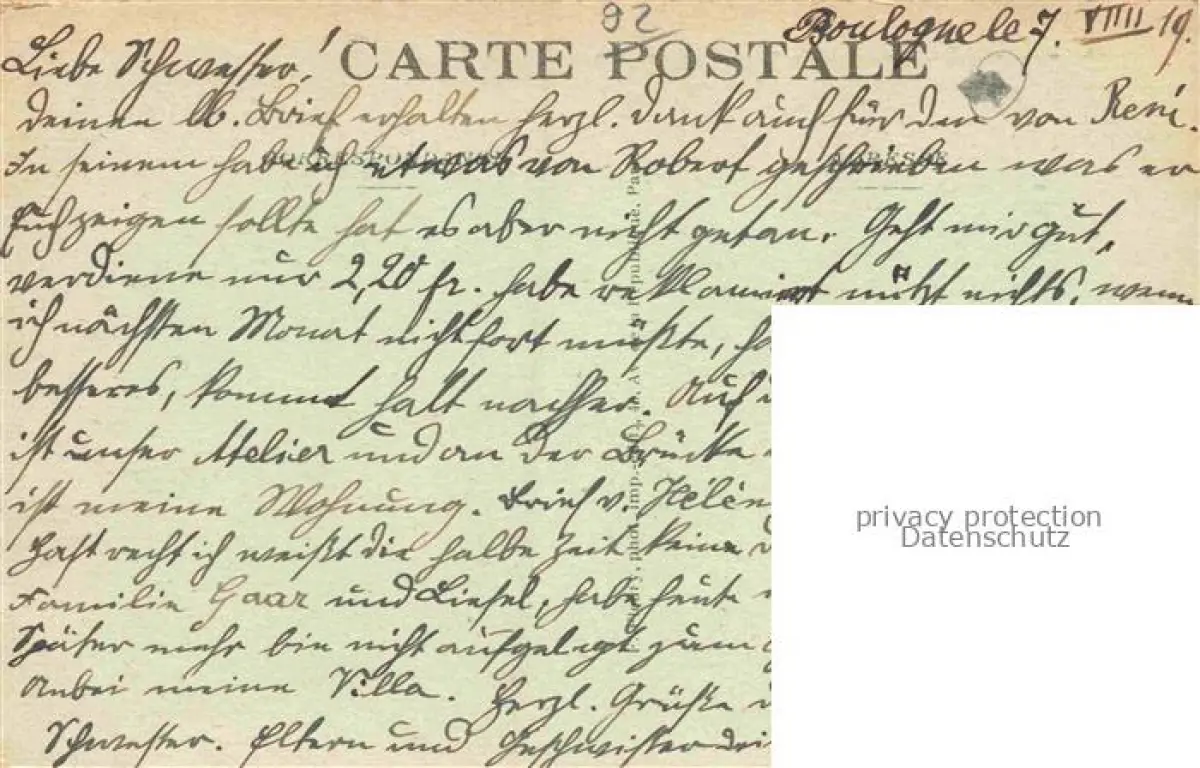 92
Boulogne le 7. VIIII 19.
CARTE POSTALE
Liebe Schwester!
deinen lb. Brief erhalten herzl. Dank auch für den von René.
In seinem habe ich etwas von Robert geschrieben was er
Euch zeigen sollte hat es aber nicht getan. Geht mir gut,
verdiene nur 2,20 fr. habe reklamiert nützt nichts, wenn
ich nächsten Monat nicht fort müßte,
besseres, kommt halt nachher. Auf
ist unser Atelier und an der Brücke
ist meine Wohnung. Brief v. Hélèn
hast recht ich weißt die halbe Zeit keine
Familie Haar und Liesel, habe heute
Später mehr bin nicht aufgelegt zum
Anbei meine Villa. Herzl. Grüße
Schwester. Eltern und Geschwister
CORRESPONDANCE
privacy protection
Datenschutz